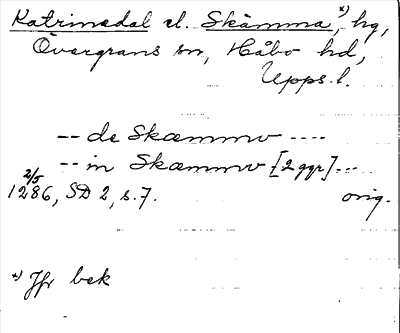 Katrinedal el. Skämma, x) hg,
Övergrans sn, Håbo hd,
Upps. l.
-- de Skæmmv ----
-- in Skæmmv [2 ggr] ---
2/5
1286, SD 2, s. 7. orig.
x) Jfr bek